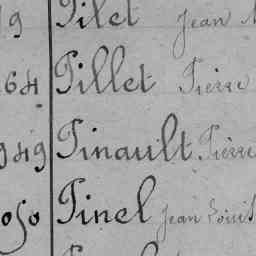 9 Pilet Jean
64 Pillet Pierre
949 Pinault Pierre
050 Pinel Jean Louis